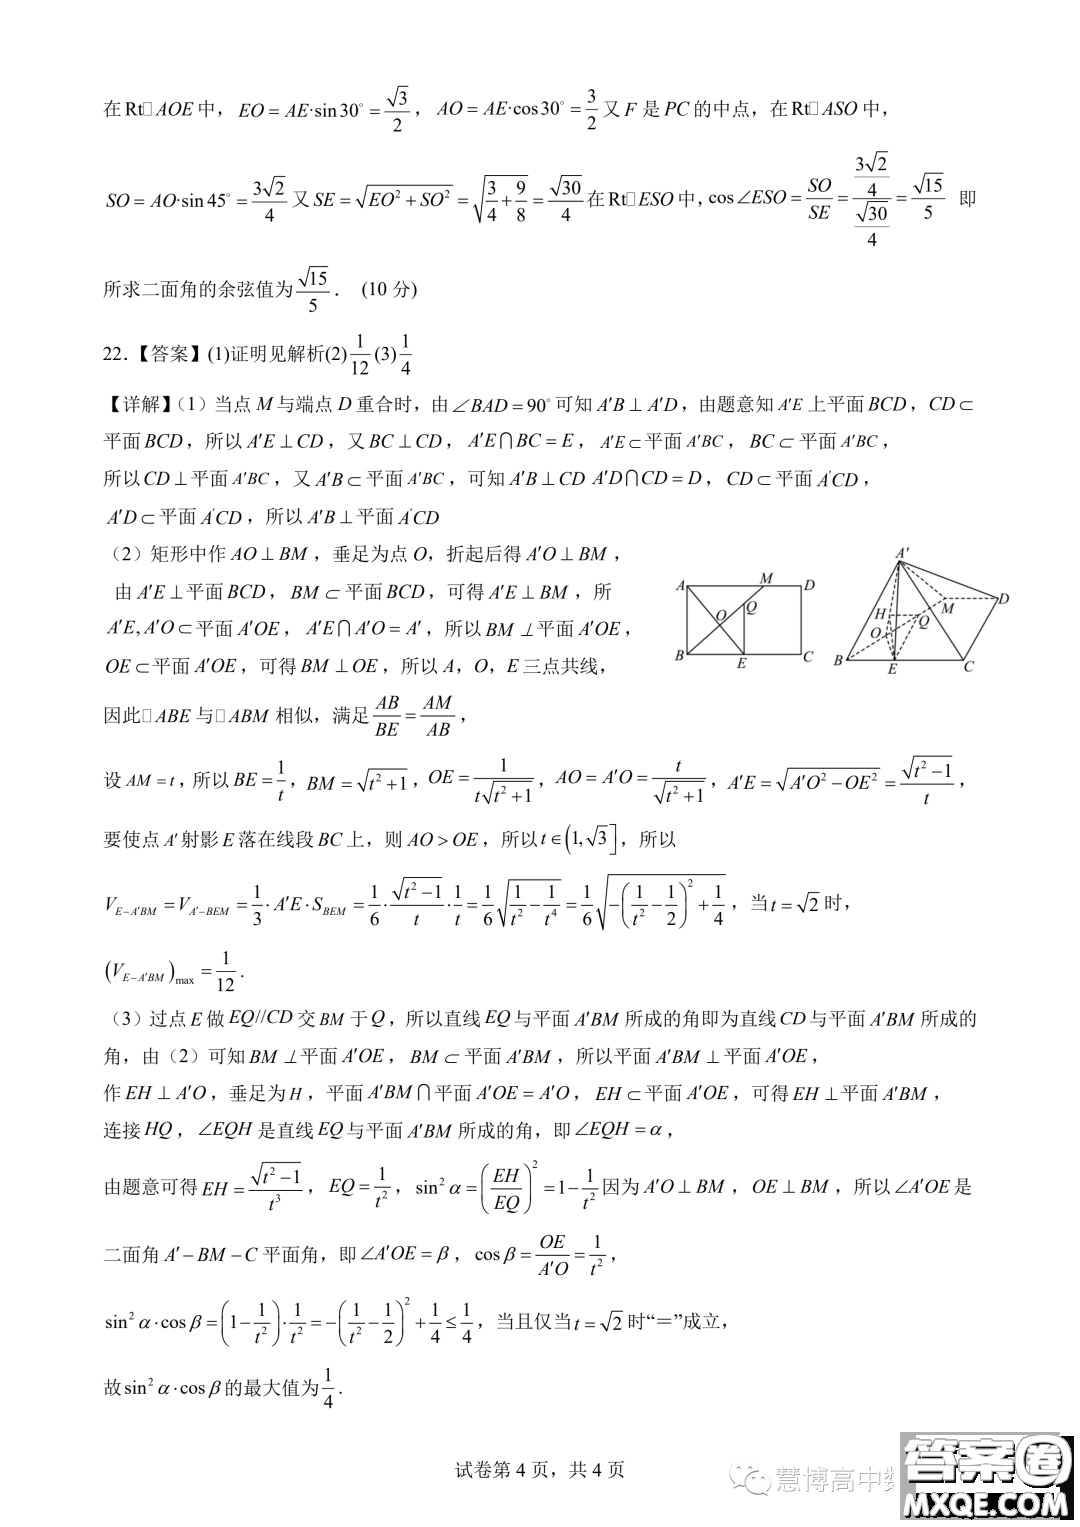 在Rt□AOE中，EO = AE·sin30° = √3/2，AO = AE·cos30° = 3/2 又F是PC的中点，在Rt□ASO中，
SO = AO·sin45° = 3√2/4 又SE = √(EO²+SO²) = √(3/4+9/8) = √30/4 在Rt□ESO中，cos∠ESO = SO/SE = (3√2/4)/(√30/4) = √15/5 即
所求二面角的余弦值为√15/5． (10分)
22．【答案】(1)证明见解析(2)1/12 (3)1/4
【详解】（1）当点M与端点D重合时，由∠BAD = 90°可知A′B⊥A′D，由题意知A′E上平面BCD，CD⊂
平面BCD，所以A′E⊥CD，又BC⊥CD，A′E∩BC = E，A′E⊂平面A′BC，BC⊂平面A′BC，
所以CD⊥平面A′BC，又A′B⊂平面A′BC，可知A′B⊥CD A′D∩CD = D，CD⊂平面A′CD，
A′D⊂平面A′CD，所以A′B⊥平面A′CD
（2）矩形中作AO⊥BM，垂足为点O，折起后得A′O⊥BM，
由A′E⊥平面BCD，BM⊂平面BCD，可得A′E⊥BM，所
A′E,A′O⊂平面A′OE，A′E∩A′O = A′，所以BM⊥平面A′OE，
OE⊂平面A′OE，可得BM⊥OE，所以A，O，E三点共线，
因此□ABE与□ABM相似，满足AB/BE = AM/AB，
A M D O Q B E C
A′ D M H Q O B E C
设AM = t，所以BE = 1/t，BM = √(t²+1)，OE = 1/(t√(t²+1))，AO = A′O = t/√(t²+1)，A′E = √(A′O²−OE²) = √(t²−1)/t，
要使点A′射影E落在线段BC上，则AO > OE，所以t∈(1,√3]，所以
V_{E−A′BM} = V_{A′−BEM} = 1/3·A′E·S_{BEM} = 1/6·√(t²−1)/t·1/t = 1/6√(1/t²−1/t⁴) = 1/6√(−(1/t²−1/2)²+1/4)，当t = √2时，
(V_{E−A′BM})_{max} = 1/12．
（3）过点E做EQ//CD交BM于Q，所以直线EQ与平面A′BM所成的角即为直线CD与平面A′BM所成的
角，由（2）可知BM⊥平面A′OE，BM⊂平面A′BM，所以平面A′BM⊥平面A′OE，
作EH⊥A′O，垂足为H，平面A′BM∩平面A′OE = A′O，EH⊂平面A′OE，可得EH⊥平面A′BM，
连接HQ，∠EQH是直线EQ与平面A′BM所成的角，即∠EQH = α，
由题意可得EH = √(t²−1)/t³，EQ = 1/t²，sin²α = (EH/EQ)² = 1−1/t² 因为A′O⊥BM，OE⊥BM，所以∠A′OE是
二面角A′−BM−C平面角，即∠A′OE = β，cosβ = OE/A′O = 1/t²，
sin²α·cosβ = (1−1/t²)·1/t² = −(1/t²−1/2)²+1/4 ≤ 1/4，当且仅当t = √2时“＝”成立，
故sin²α·cosβ的最大值为1/4．
试卷第4页，共4页
慧博高中数
答案圈
MXQE.COM